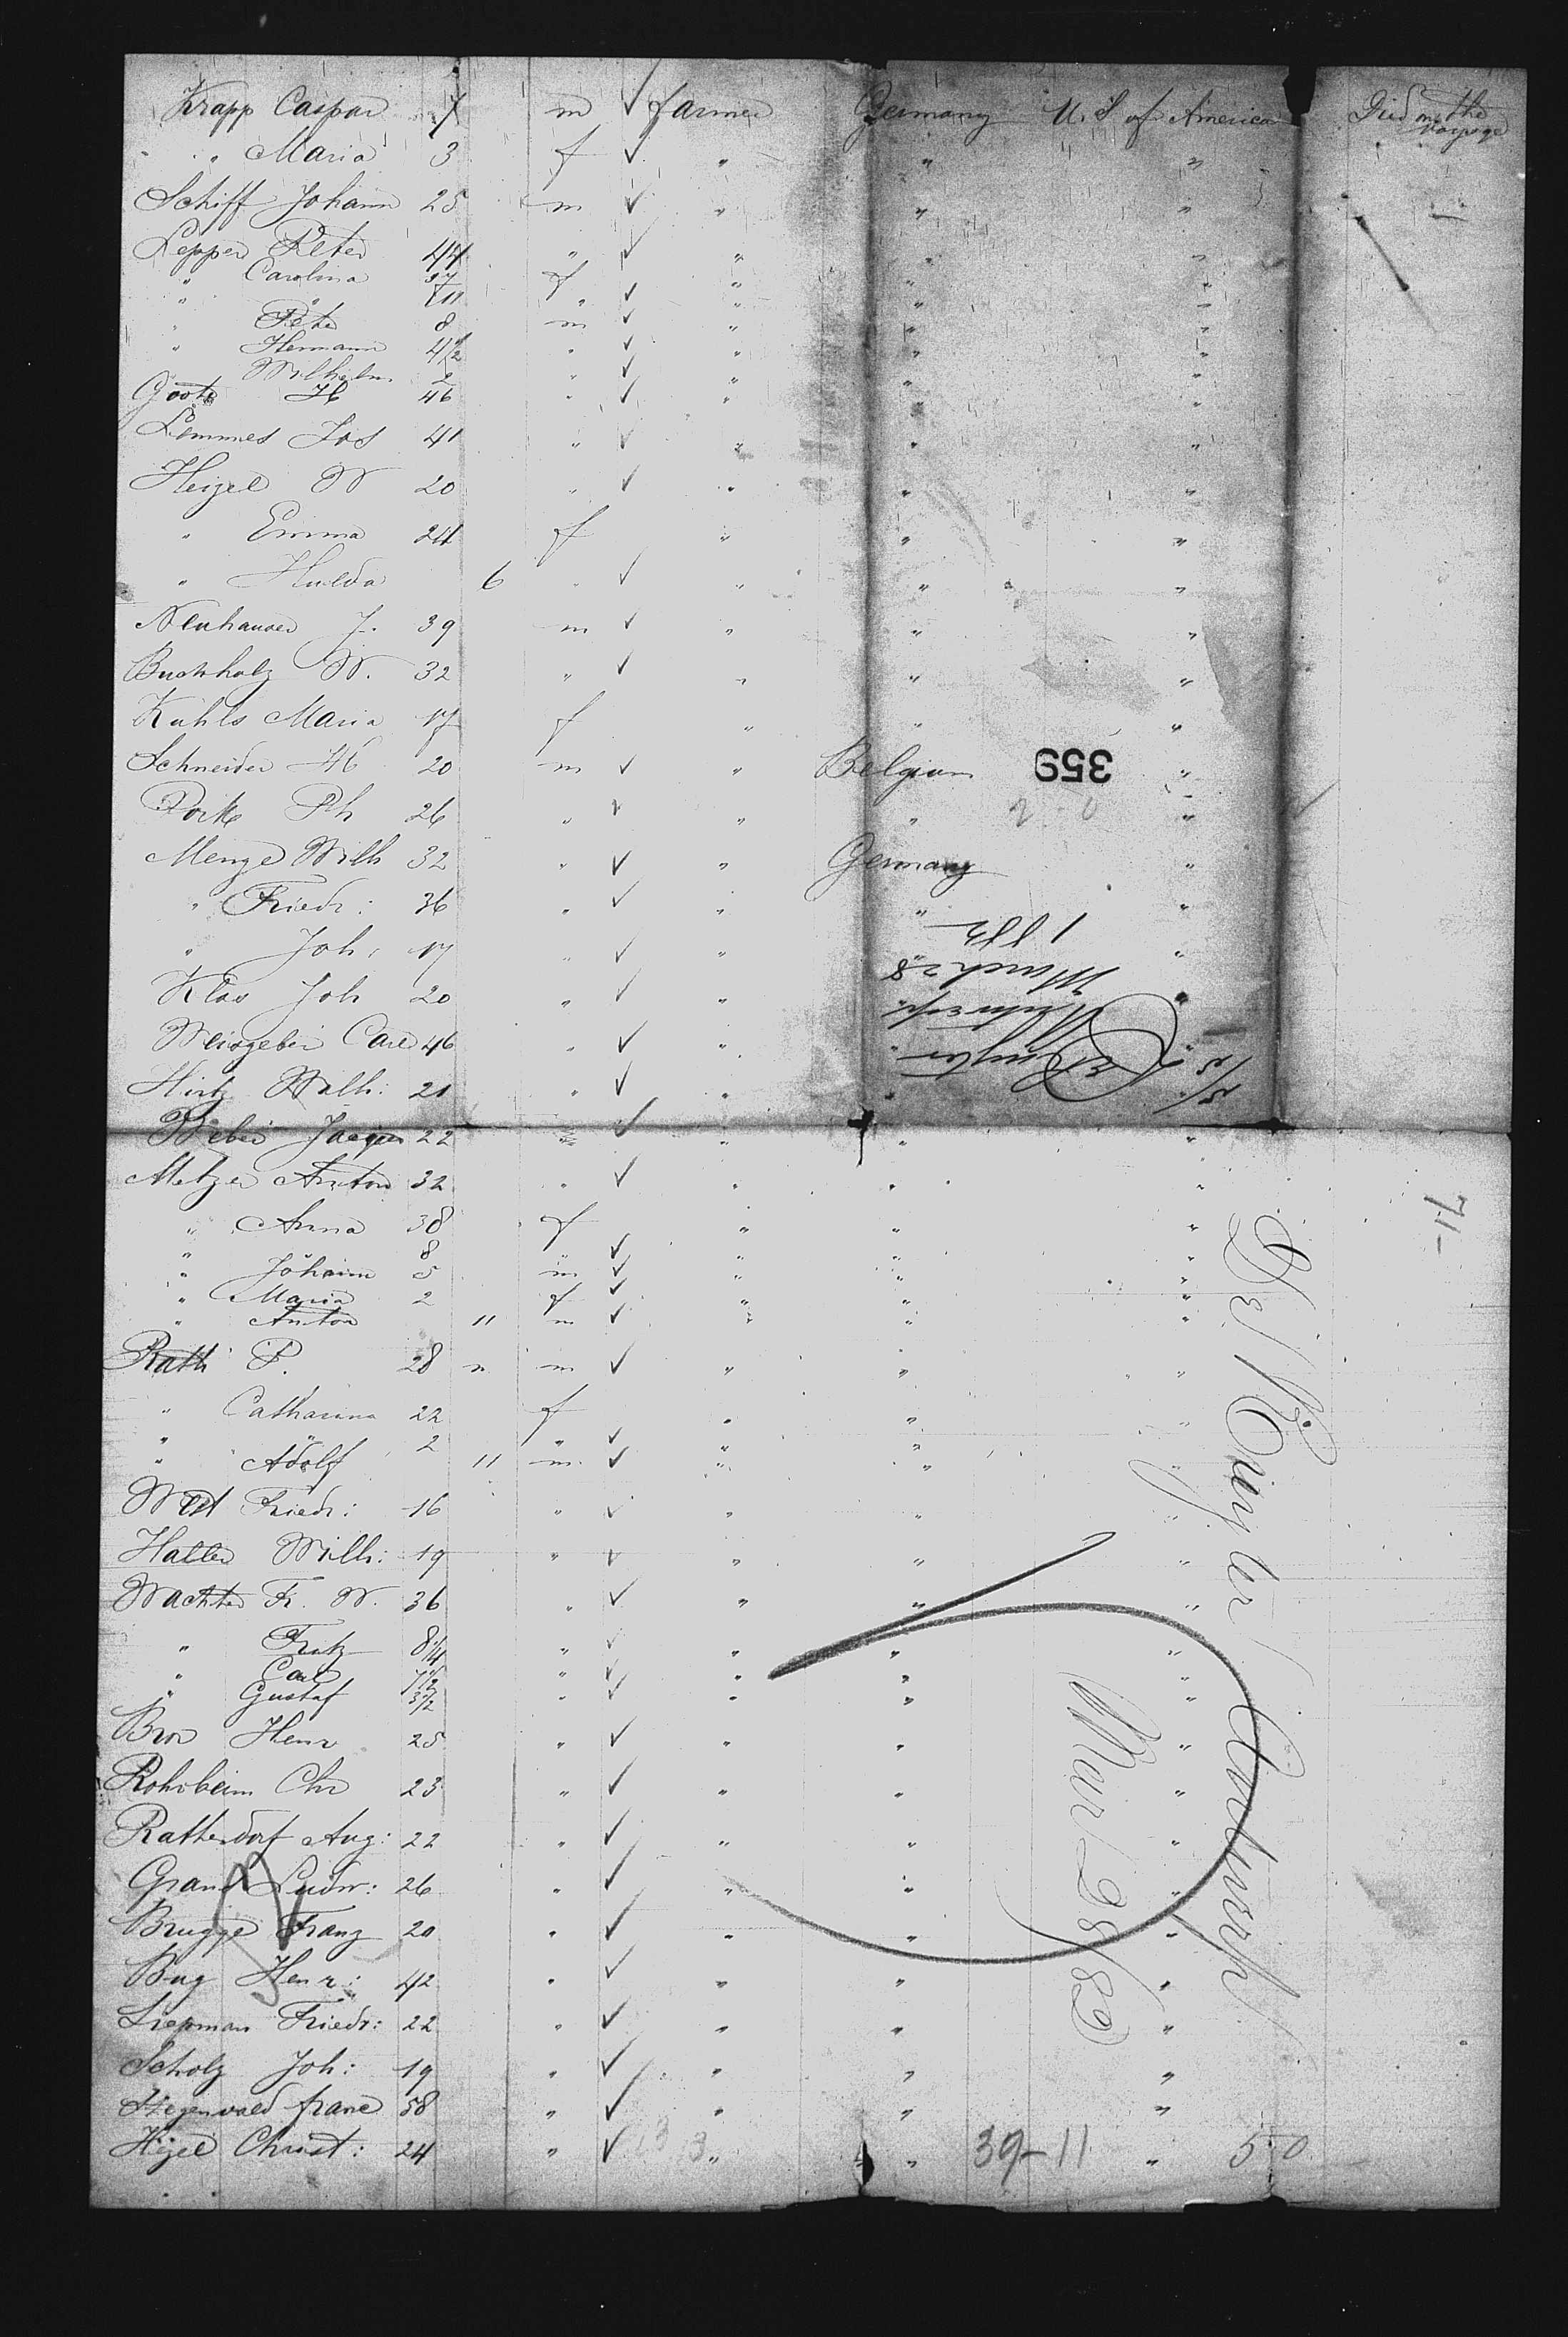 Krapp Caspar 7 m ✓ farmer Germany U. S of America Died on the voyage
" Maria 3 f ✓ " " "
Schiff Johann 25 m ✓ " " "
Lepper Peter 44 " ✓ " " "
" Carolina 37 f " " "
" " 11 " ✓ " " "
" Peter 8 m ✓ " " "
" Hermann 4 1/2 " ✓ " " "
" Wilhelm 2 " ✓ " " "
Goote H 46 " ✓ " " "
Lemmes Jos 41 " ✓ " " "
Heizel W 20 " ✓ " " "
" Emma 24 f " " "
" Hulda 6 " ✓ " " "
Neuhauser J. 39 m ✓ " " "
Buchholz W. 32 " ✓ " " "
Kuhls Maria 17 f " " "
Schneider H 20 m ✓ " Belgium "
359
Ph 26 " ✓ " " "
Menge Wilh 32 " ✓ " Germany "
" Friedr: 36 " ✓ " " "
" Joh: 17 " ✓ " " "
Klas Joh 20 " ✓ " " "
Weisgeber Carl 46 " ✓ " " "
Hirtz Wilh: 21 " ✓ " " "
S/S De Ruyter
Antwerp
March 28
1882
Weber Jacques 22 " ✓ " " "
Metzer Anton 32 " ✓ " " "
" Anna 38 f " " "
" " 8 " ✓ " " "
" Johann 5 m ✓ " " "
" Maria 2 f ✓ " " "
" Anton 11 m ✓ " " "
Rath P. 28 " m ✓ " " "
" Catharina 22 f " " "
" " 2 " ✓ " " "
" Adolf 11 m ✓ " " "
West Friedr: 16 " ✓ " " "
Haller Wilh: 19 " ✓ " " "
Wachter Fr. W. 36 " ✓ " " "
" Fritz 8 1/4 " ✓ " " "
" Carl 7 1/2 " ✓ " " "
" Gustaf 3 1/2 " ✓ " " "
Bror Henr 25 " ✓ " " "
Rohrbeim Chr 23 " ✓ " " "
Rathendorf Aug: 22 " ✓ " " "
Grand Ludw: 26 " ✓ " " "
Brugge Franz 20 " ✓ " " "
Bug Henr: 42 " ✓ " " "
Liepman Friedr: 22 " ✓ " " "
Scholz Joh: 19 " ✓ " " "
Hegenwald franc 58 " ✓ " " "
Higel Christ: 24 " ✓ " " 39-11 " 50
71-
De Ruyter Antwerp
Mar 28/82